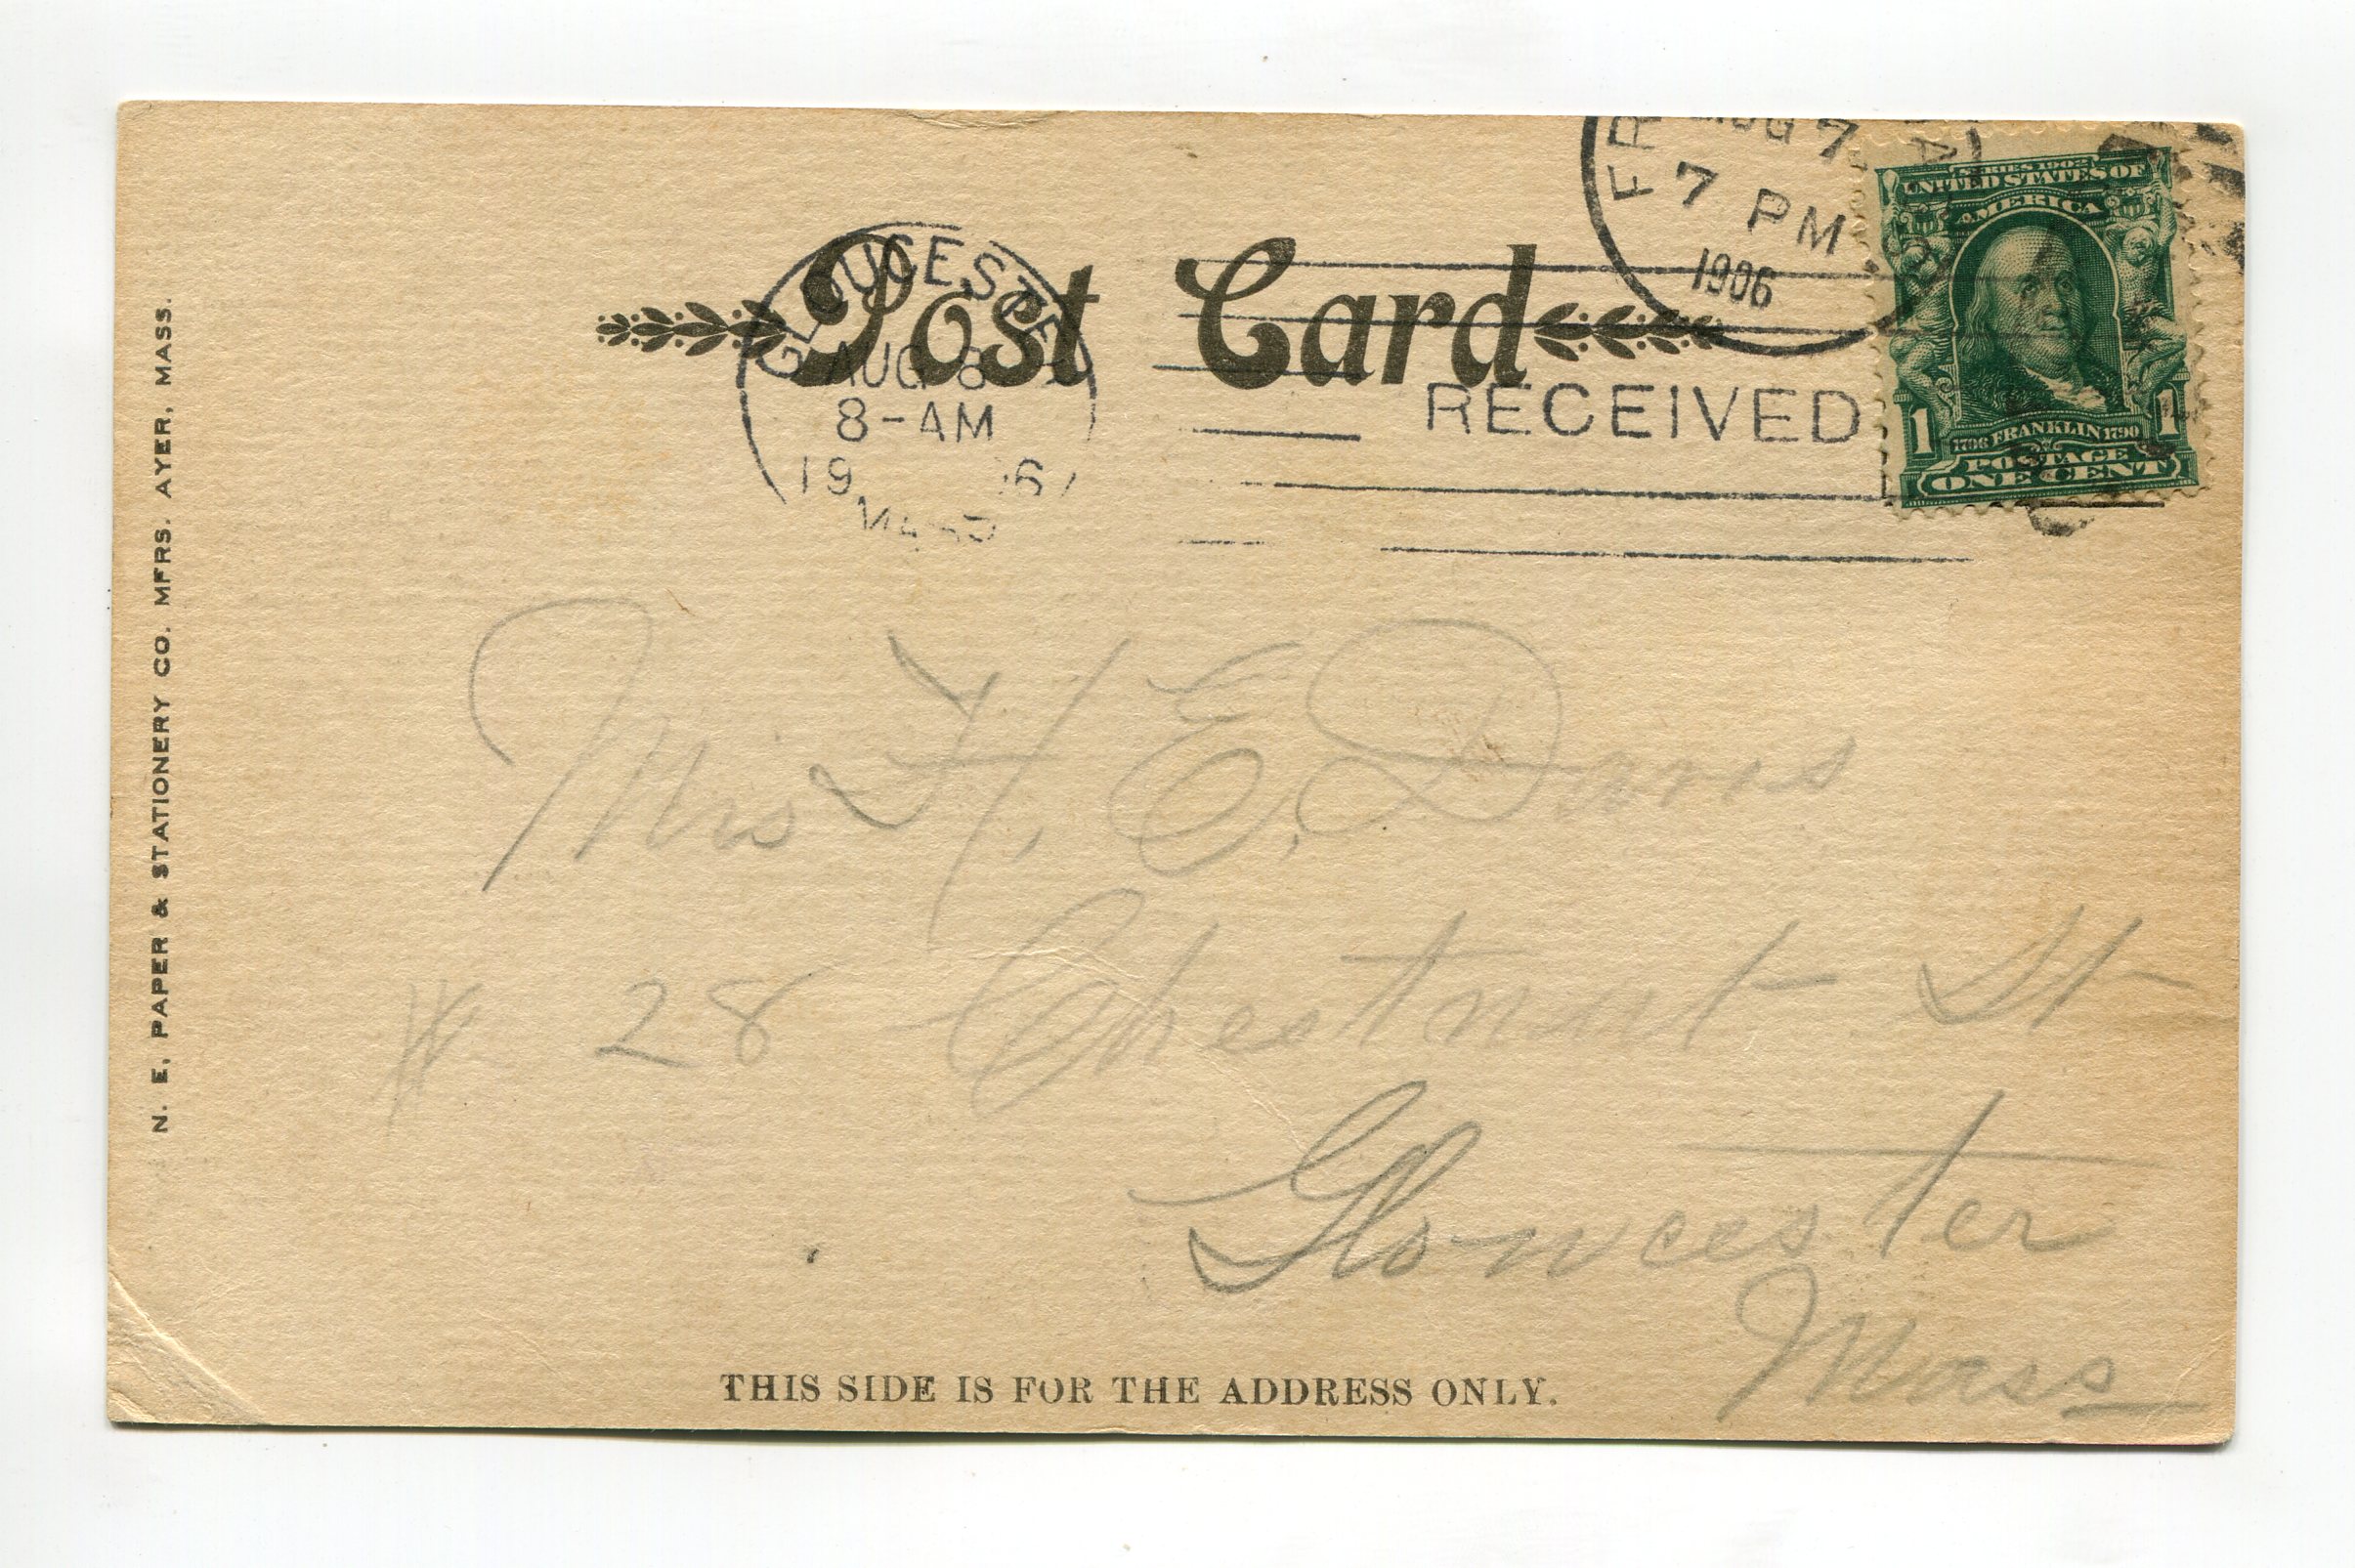 N. E. PAPER & STATIONERY CO. MFRS. AYER, MASS.
Post Card
GLOUCESTER
AUG 8
8-AM
19 6
MASS
RECEIVED
FR
AUG 7
7 PM
1906
SERIES 1902
UNITED STATES OF
AMERICA
1706 FRANKLIN 1790
1 1
POSTAGE
ONE CENT
Mrs H. E. Davis
# 28 Chestnut St
Glowcester
Mass
THIS SIDE IS FOR THE ADDRESS ONLY.